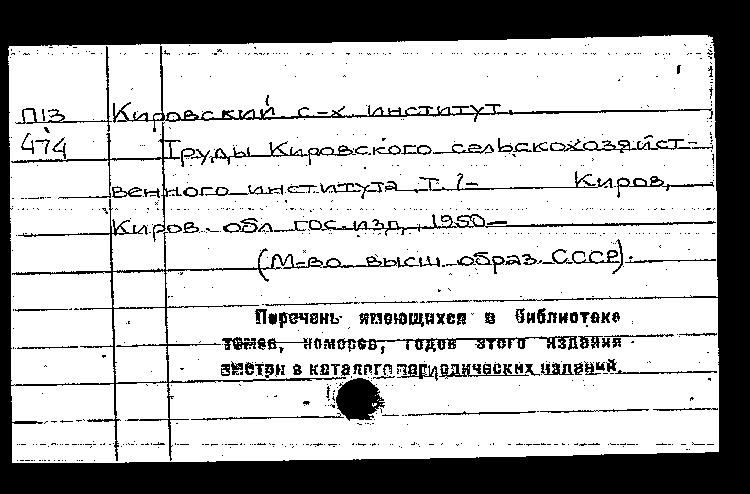 П13 Кировский с-х институт.
474 Труды Кировского сельскохозяйст-
венного института. Т. 1- Киров,
Киров. обл. гос. изд., 1950-
(М-во высш. образ. СССР).
Перечень имеющихся в библиотеке
томов, номеров, годов этого издания
смотри в каталоге периодических изданий.